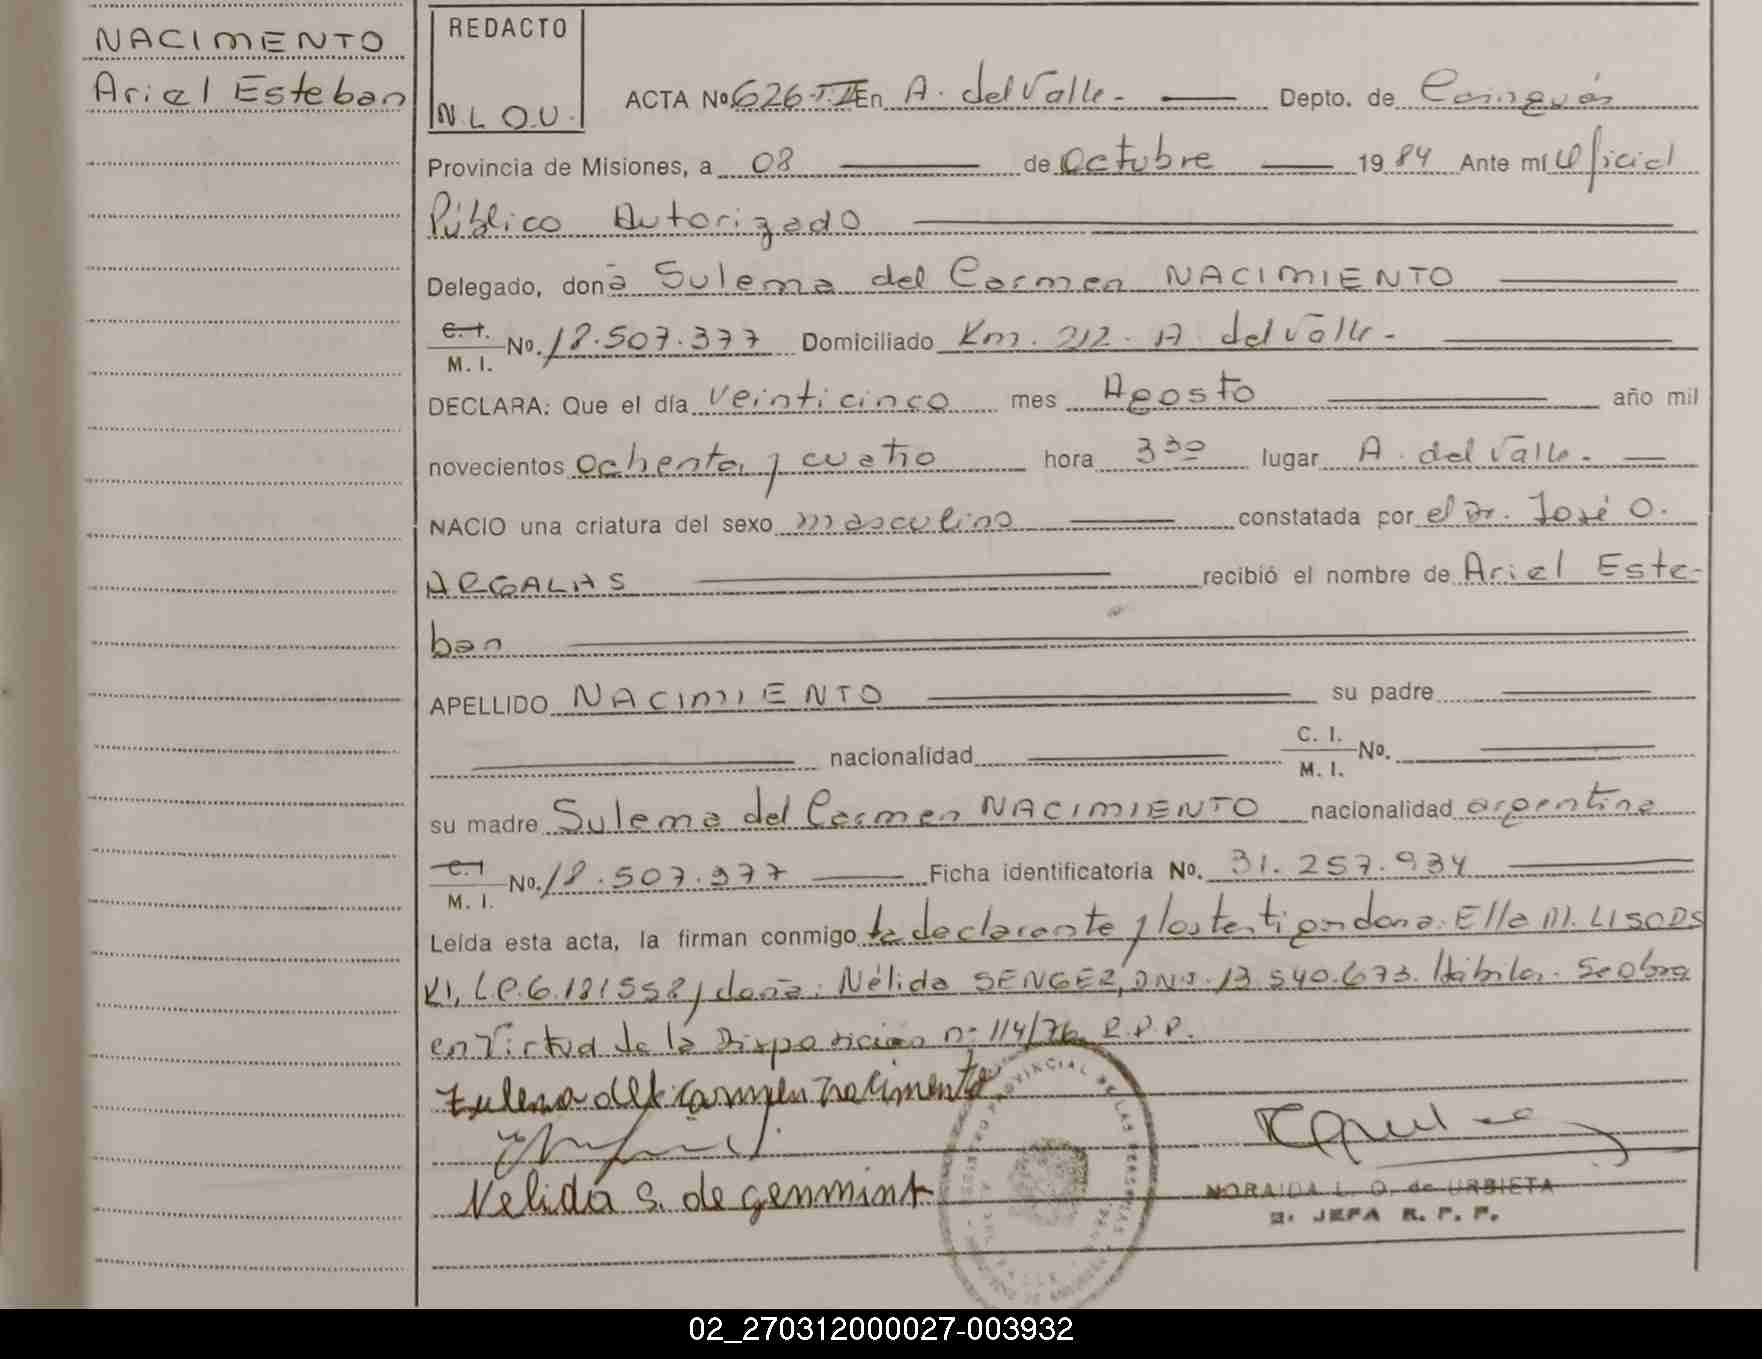 NACIMIENTO
Ariel Esteban
REDACTO
N.L.O.U.
ACTA Nº 626-TII En A. del Valle.- Depto. de Cainguás
Provincia de Misiones, a 08 de Octubre 1984 Ante mí Oficial
Público Autorizado
Delegado, doña Sulema del Carmen NACIMIENTO
C. I.
M. I. Nº. 18.507.377 Domiciliado Km. 212. A del Valle-
DECLARA: Que el día veinticinco mes Agosto año mil
novecientos ochenta y cuatro hora 3³⁰ lugar A. del Valle.
NACIO una criatura del sexo masculino constatada por el Dr. José O.
ARGALAS recibió el nombre de Ariel Este-
ban
APELLIDO NACIMIENTO su padre
nacionalidad C. I.
M. I. Nº.
su madre Sulema del Carmen NACIMIENTO nacionalidad argentina
C. I.
M. I. Nº. 18.507.377 Ficha identificatoria Nº. 31.257.934
Leída esta acta, la firman conmigo la declarante y los testigos doña: Ella M. LISODS
KI, L.C. 6.181558 y doña: Nélida SENGER, DNI. 13.540.673. Hábiles. Se obra
en Virtud de la Disposición nº 114/76 R.P.P.
Zulema del Carmen Nacimento
Nelida S. de
PROVINCIAL DE LAS PERSONAS
NORAIDA L. O. de URBIETA
JEFA R. P. P.
02_270312000027-003932